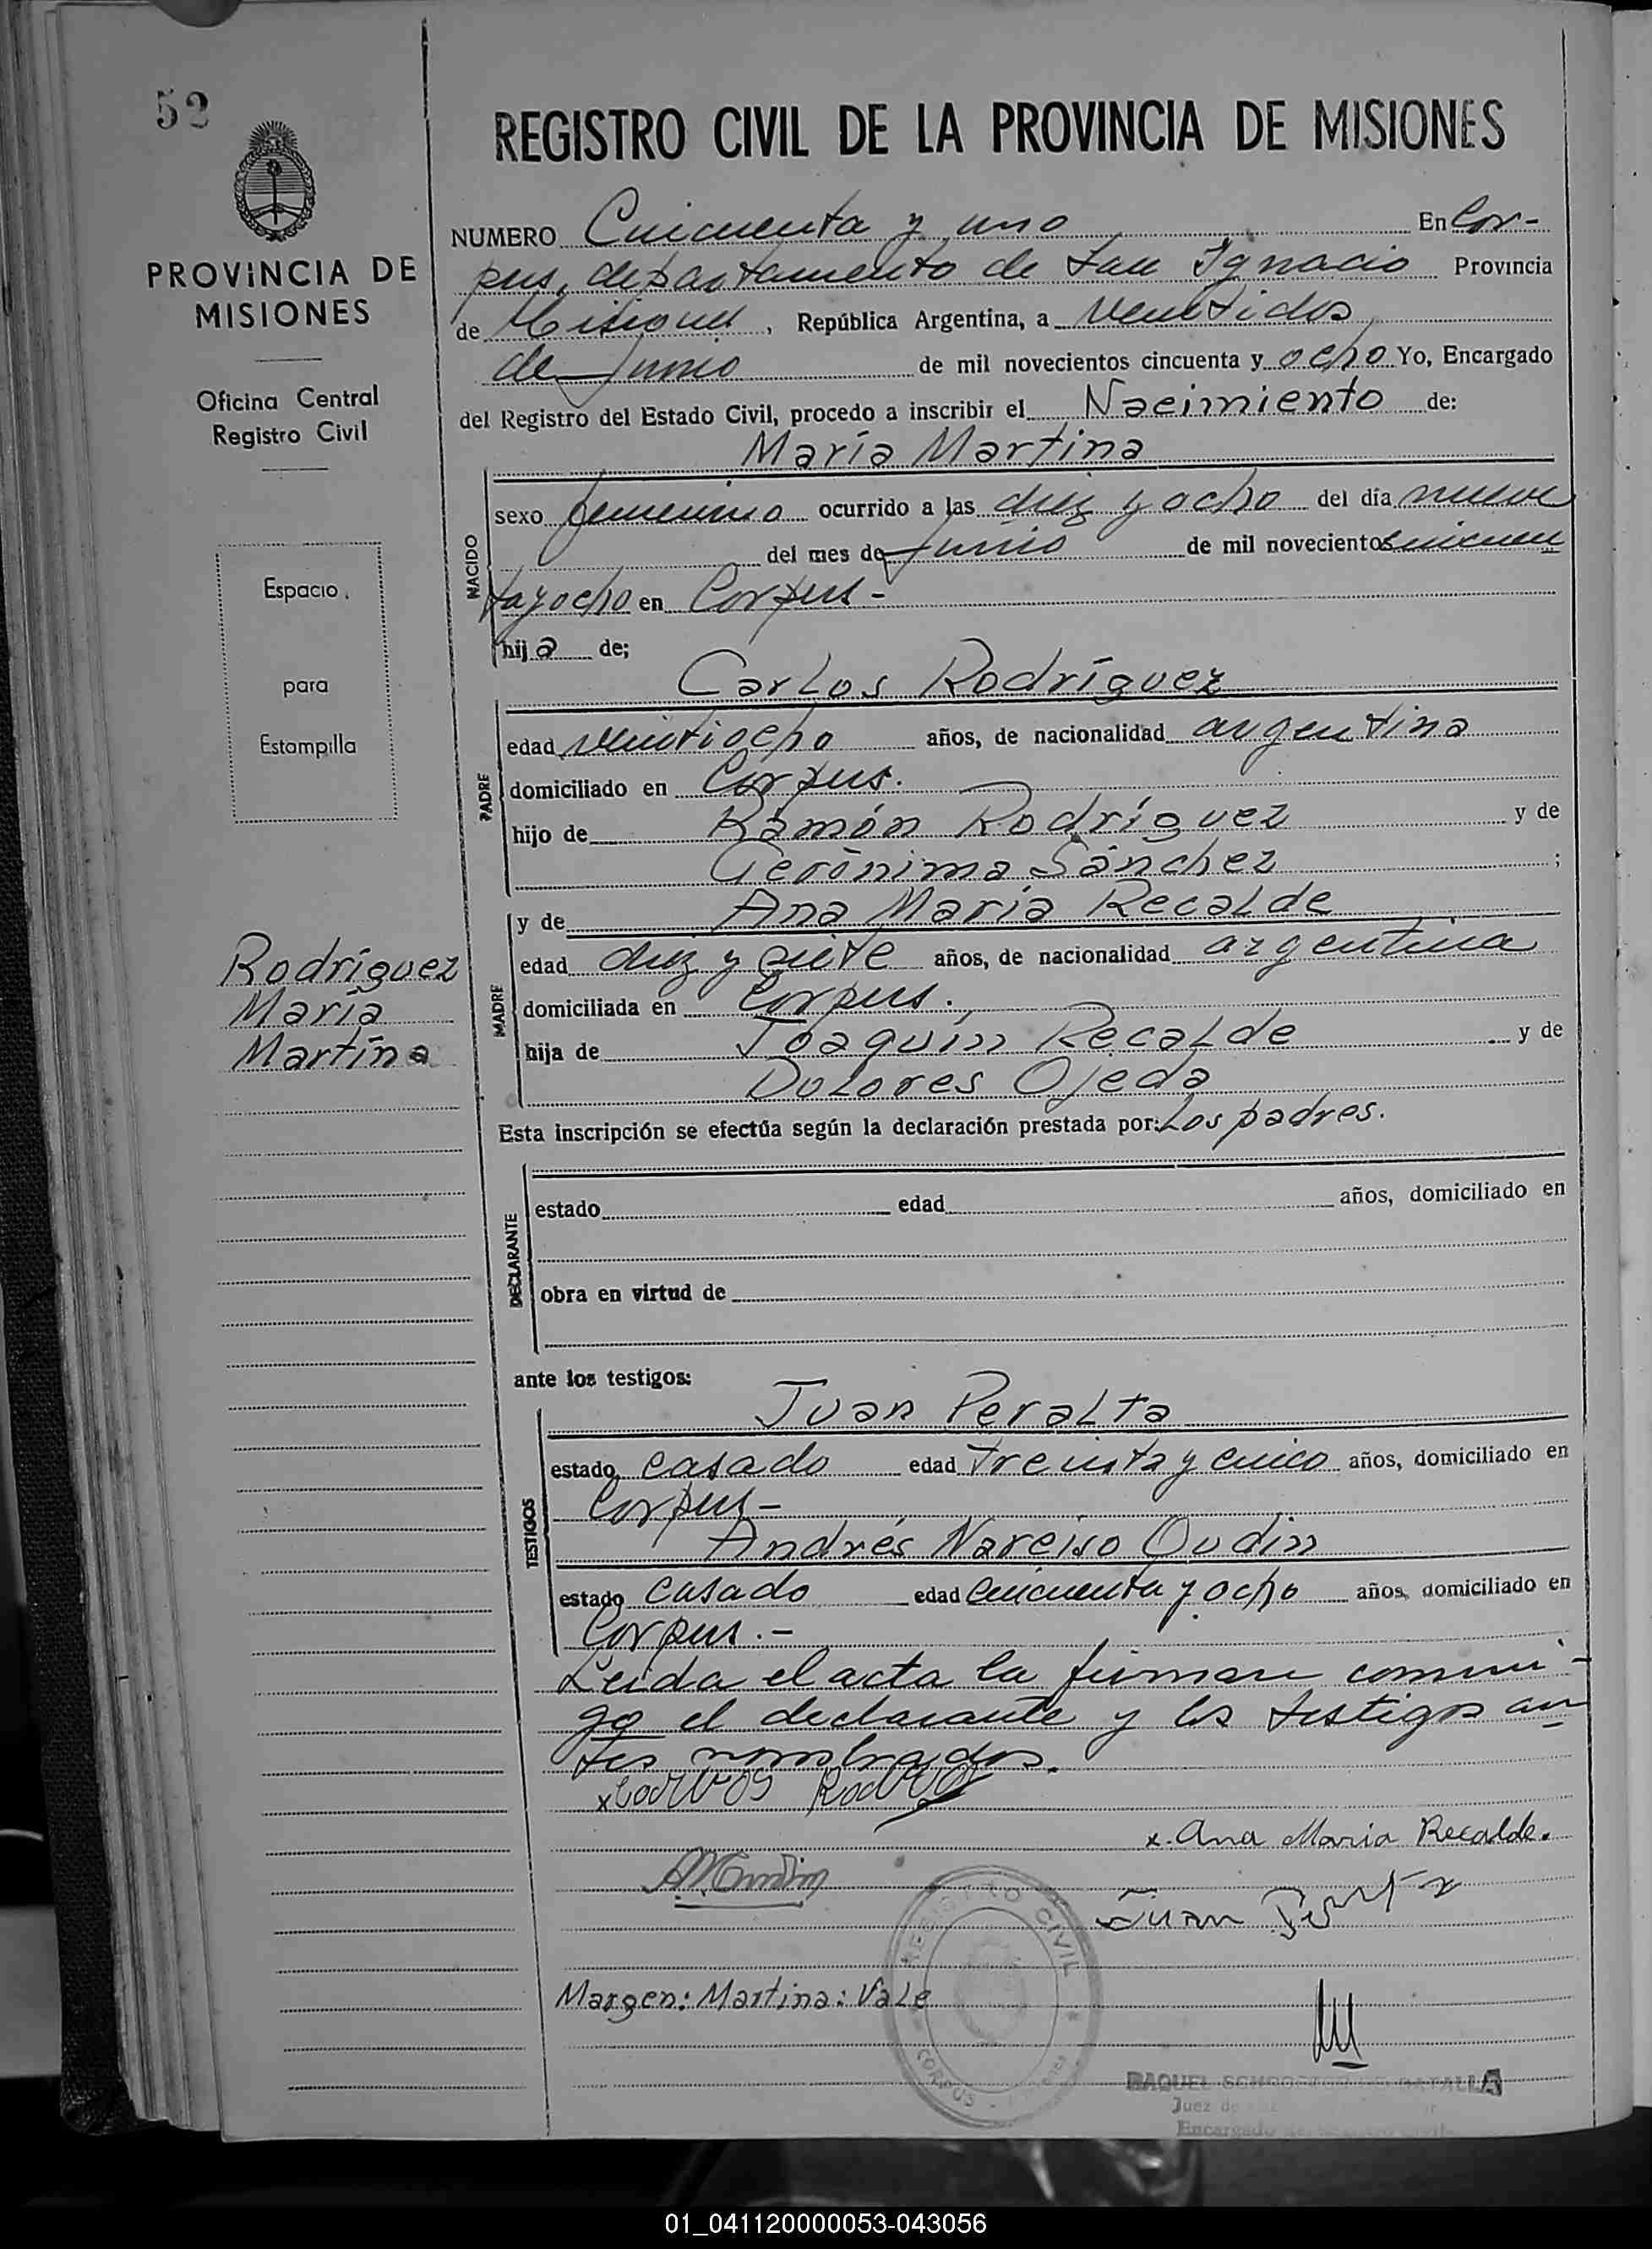 52
REGISTRO CIVIL DE LA PROVINCIA DE MISIONES
PROVINCIA DE
MISIONES
Oficina Central
Registro Civil
Espacio
para
Estampilla
Rodríguez
María
Martína
NUMERO Cincuenta y uno En Cor-
pus, departamento de San Ignacio Provincia
de Misiones, República Argentina, a veintidos
de Junio de mil novecientos cincuenta y ocho Yo, Encargado
del Registro del Estado Civil, procedo a inscribir el Nacimiento de:
María Martina
NACIDO
sexo femenino ocurrido a las diez y ocho del día nueve
del mes de Junio de mil novecientos cincuen
tayocho en Corpus-
hija de;
Carlos Rodríguez
PADRE
edad veintiocho años, de nacionalidad argentina
domiciliado en Corpus.
hijo de Ramón Rodríguez y de
Gerónima Sánchez ;
MADRE
y de Ana María Recalde
edad diez y siete años, de nacionalidad argentina
domiciliada en Corpus.
hija de Joaquín Recalde y de
Dolores Ojeda
Esta inscripción se efectúa según la declaración prestada por: Los padres.
DECLARANTE
estado edad años, domiciliado en
obra en virtud de
ante los testigos:
Juan Peralta
TESTIGOS
estado casado edad treinta y cinco años, domiciliado en
Corpus-
Andrés Narciso Oudin
estado casado edad cincuenta y ocho años, domiciliado en
Corpus.-
Leida el acta la firman conmi-
go el declarante y los testigos an
tes nombrados.
x Carlos
x. Ana Maria Recalde.
Juan
REGISTRO CIVIL
CORPUS
Margen: Martina: Vale
RAQUEL BATALLA
Juez de
Encargado
01_041120000053-043056